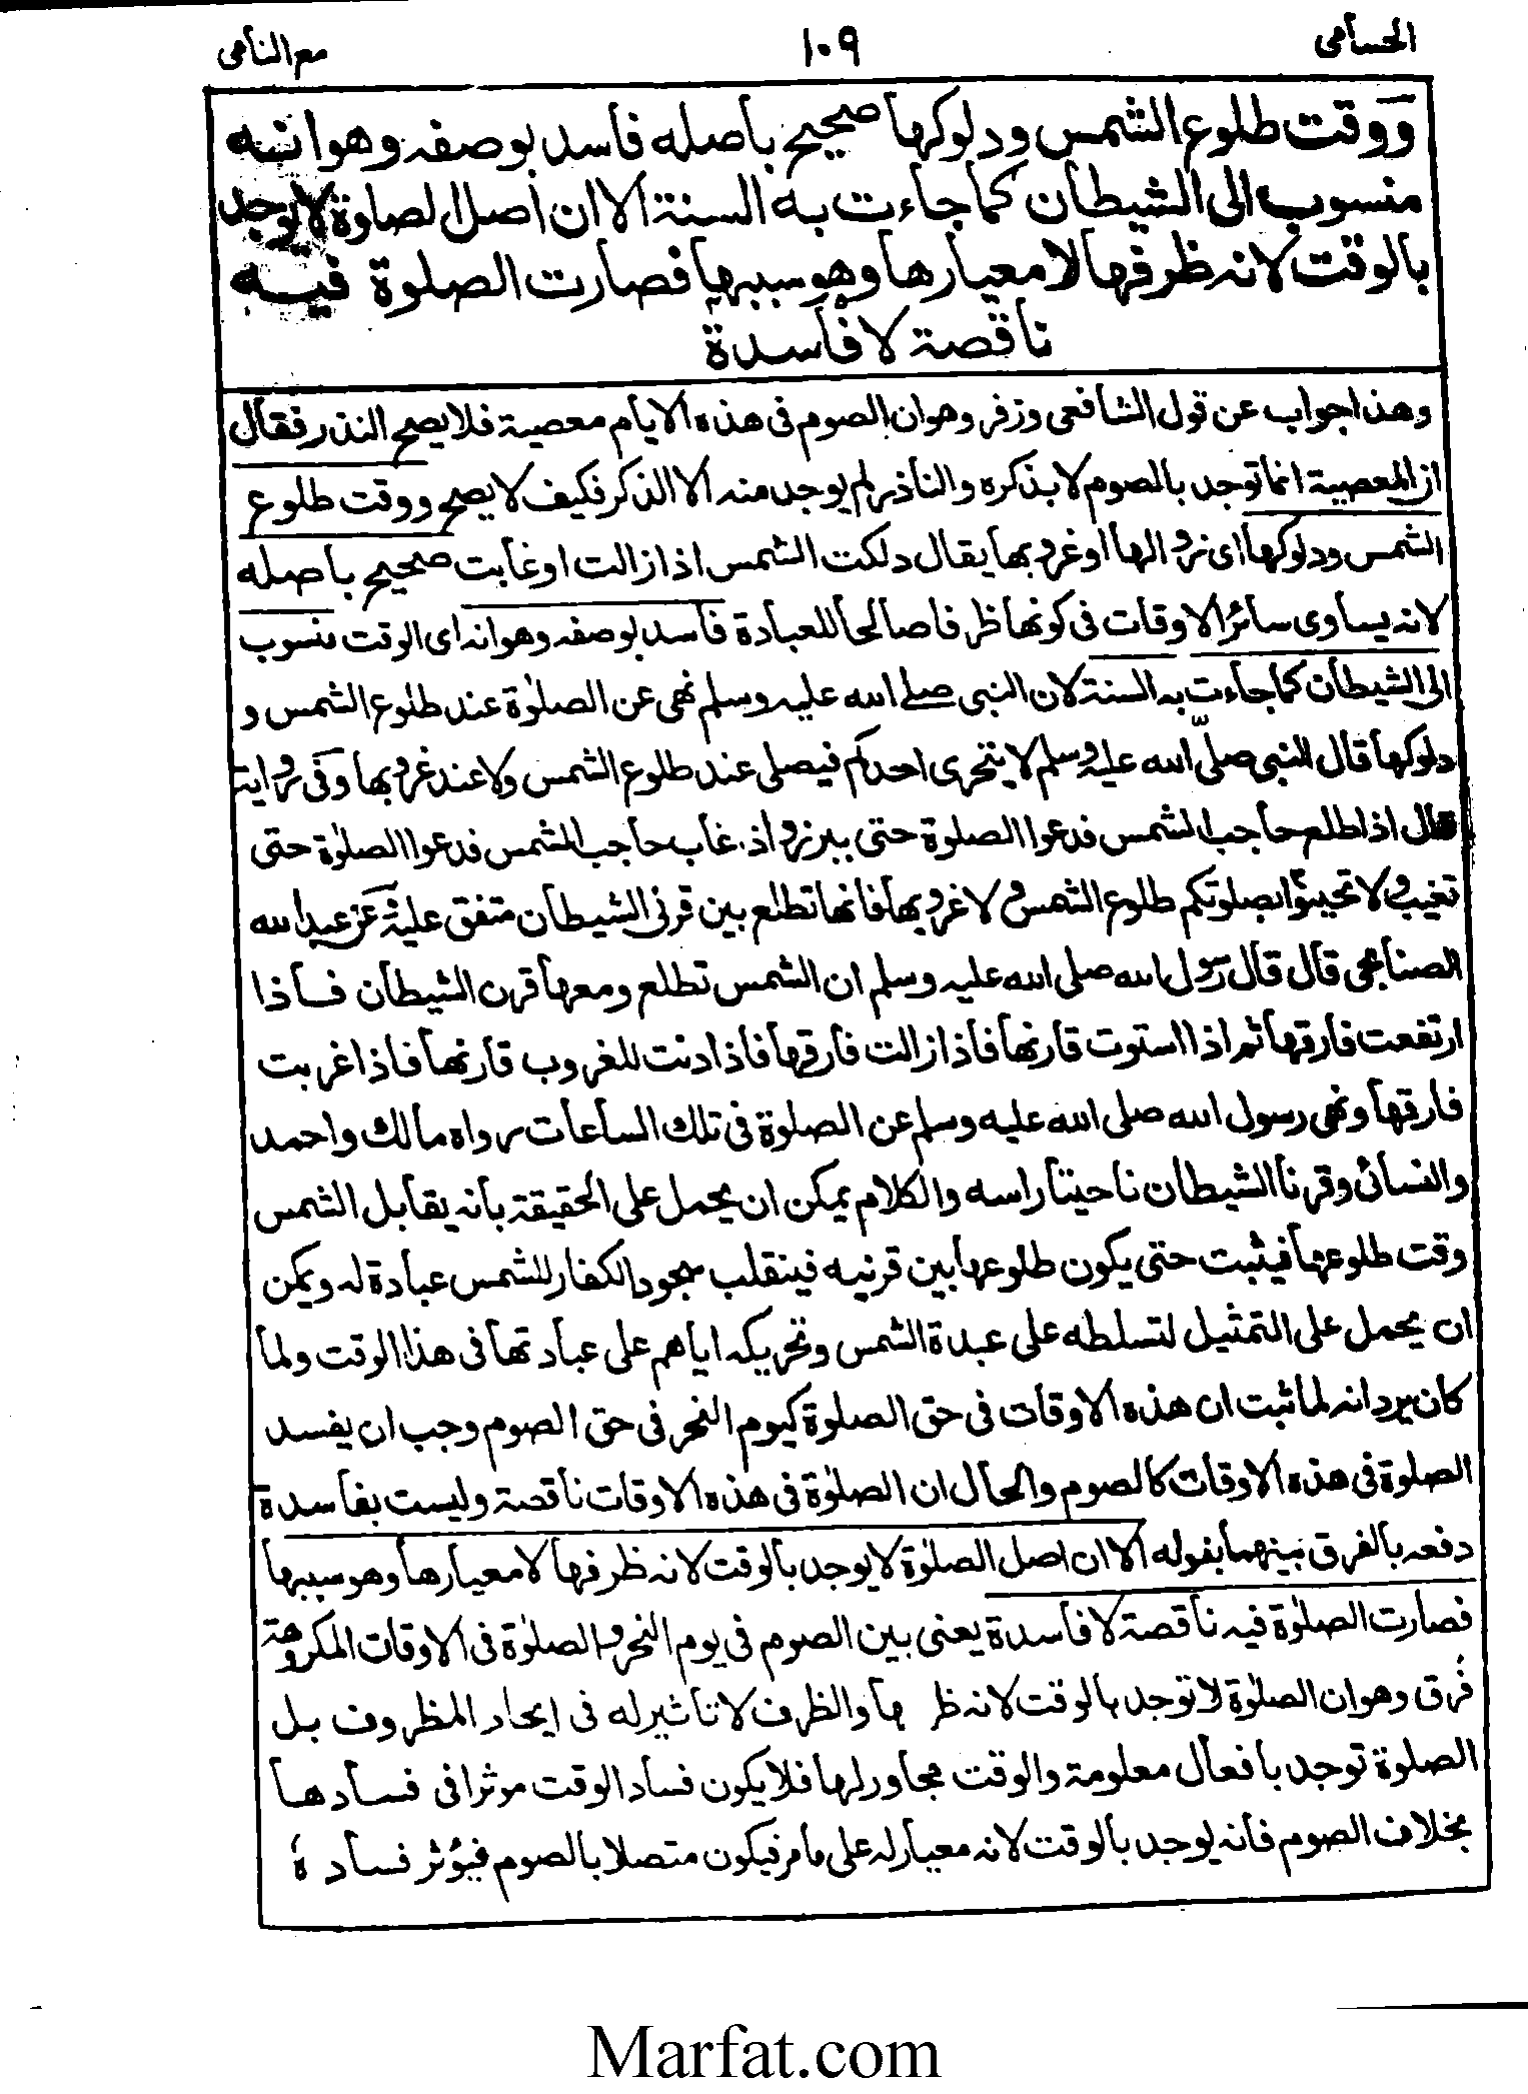 الحسامى ١٠٩ مع النامى
ووقت طلوع الشمس ودلوكها صحيح باصله فاسد بوصفه وهو انه
منسوب الى الشيطان كما جاءت به السنة الا ان اصل الصلوة لا يوجد
بالوقت لانه ظرفها لا معيارها وهو سببها فصارت الصلوة فيه
ناقصة لا فاسدة
وهذا جواب عن قول الشافعى وزفر وهو ان الصوم فى هذه الايام معصية فلا يصح النذر فقال
ان المعصية انما توجد بالصوم لا بذكره والناذر لم يوجد منه الا الذكر فكيف لا يصح ووقت طلوع
الشمس ودلوكها اى زوالها او غروبها يقال دلكت الشمس اذا زالت او غابت صحيح باصله
لانه يساوى سائر الاوقات فى كونها ظرفا صالحا للعبادة فاسد بوصفه وهو انه اى الوقت منسوب
الى الشيطان كما جاءت به السنة لان النبى صلے الله عليه وسلم نهى عن الصلوٰة عند طلوع الشمس و
دلوكها قال النبى صلّى الله عليه وسلم لا يتحرى احدكم فيصلى عند طلوع الشمس ولا عند غروبها وفى رواية
قال اذا طلع حاجب الشمس فدعوا الصلوة حتى يبرز واذا غاب حاجب الشمس فدعوا الصلوٰة حتى
تغيب ولا تحينوا بصلوتكم طلوع الشمس ولا غروبها فانها تطلع بين قرنى الشيطان متفق عليه وعن عبد الله
الصنابحى قال قال رسول الله صلى الله عليه وسلم ان الشمس تطلع ومعها قرن الشيطان فاذا
ارتفعت فارقها ثم اذا استوت قارنها فاذا زالت فارقها فاذا دنت للغروب قارنها فاذا غربت
فارقها ونهى رسول الله صلى الله عليه وسلم عن الصلوة فى تلك الساعات رواه مالك واحمد
والنسائى وقرنا الشيطان ناحيتا راسه والكلام يمكن ان يحمل على الحقيقة بانه يقابل الشمس
وقت طلوعها فيثبت حتى يكون طلوعها بين قرنيه فينقلب سجود الكفار للشمس عبادة له ويمكن
ان يحمل على التمثيل لتسلطه على عبدة الشمس وتحريكه اياهم على عبادتها فى هذا الوقت ولما
كان يرد انه لما ثبت ان هذه الاوقات فى حق الصلوة كيوم النحر فى حق الصوم وجب ان يفسد
الصلوة فى هذه الاوقات كالصوم والحال ان الصلوٰة فى هذه الاوقات ناقصة وليست بفاسدة
دفعه بالفرق بينهما بقوله الا ان اصل الصلوٰة لا يوجد بالوقت لانه ظرفها لا معيارها وهو سببها
فصارت الصلوٰة فيه ناقصة لا فاسدة يعنى بين الصوم فى يوم النحر والصلوٰة فى الاوقات المكروهة
فرق وهو ان الصلوٰة لا توجد بالوقت لانه ظر ها والظرف لا تاثير له فى ايجاد المظروف بل
الصلوة توجد بافعال معلومة والوقت مجاور لها فلا يكون فساد الوقت موثرا فى فسادها
بخلاف الصوم فانه يوجد بالوقت لانه معيار له على ما مر فيكون متصلا بالصوم فيؤثر فساده
Marfat.com